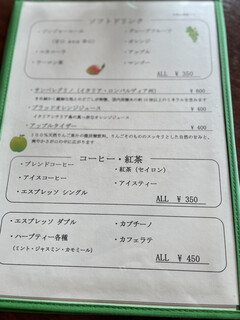 ソフトドリンク
・ジンジャーエール
・グレープフルーツ
(辛口 or 甘口)
・オレンジ
・コカコーラ
・アップル
・ウーロン茶
・マンゴー
ALL ¥ 350
・サンペレグリノ(イタリア・ロンバルディア州) ¥ 600
・ブラッドオレンジジュース ¥ 400
・アップルタイザー ¥ 400
コーヒー・紅茶
・ブレンドコーヒー
・紅茶(セイロン)
・アイスコーヒー
・アイスティー
・エスプレッソ シングル
ALL ¥ 350
・エスプレッソ ダブル
・カプチーノ
・ハーブティー各種
・カフェラテ
(ミント・ジャスミン・カモミール)
ALL ¥ 450